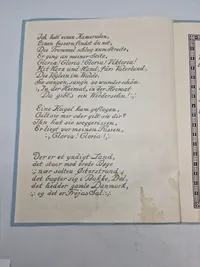 Ich hatt' einen Kameraden,
Einen bessern findst du nit,
Die Trommel schlug zum Streite,
Er ging an meiner Seite,
Gloria! Gloria! Gloria! Viktoria!
Mit Herz und Hand, fürs Vaterland,
Die Vöglein im Walde,
Sie sangen, sangen so wunderschön
In der Heimat, in der Heimat
Da gibt's ein Wiedersehn.
Eine Kugel kam geflogen,
Gilt sie mir oder gilt sie dir?
Ihn hat sie weggerissen,
Er liegt vor meinen Füssen,
Gloria! Gloria!
Der er et yndigt Land,
det staar med brede Bøge
nær salten Østerstrand
det bugter sig i Bakke, Dal,
det hedder gamle Danmark,
og det er Frejas Sal.